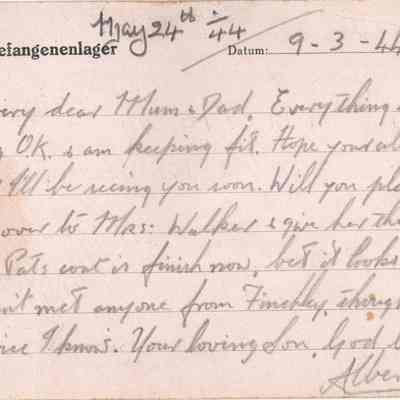 May 24th ÷ 44
efangenenlager Datum: 9-3-44
ery dear Mum & Dad, Everything
O.K. & am keeping fit. Hope your al
I'll be seeing you soon. Will you pl
over to Mrs: Walker & give her th
Pats coat is finish now, bet it looks
n't met anyone from Finchley, thoug
I know. Your loving Son, God
Alber